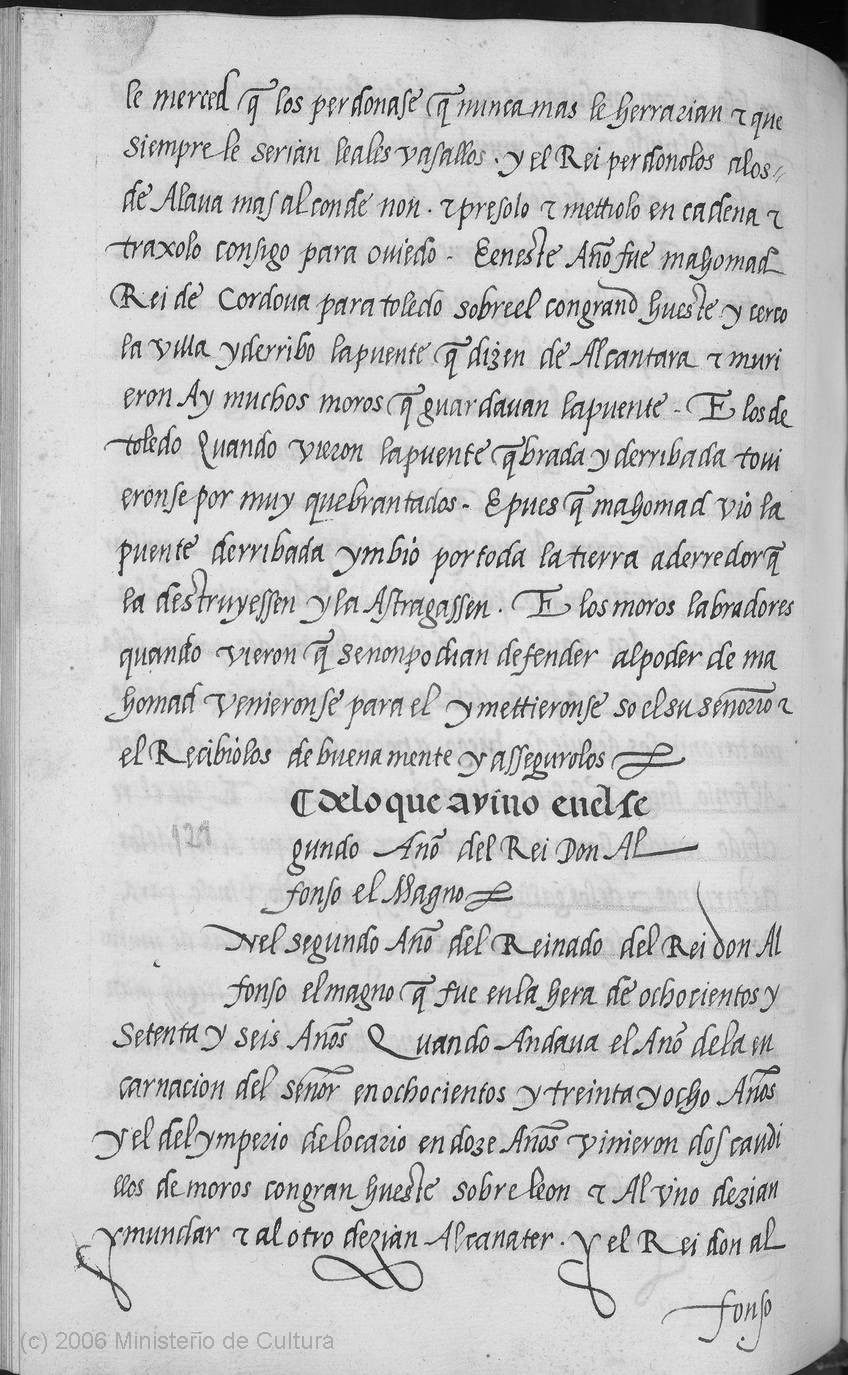 le merced q̃ los perdonase q̃ nunca mas le herrarian ꞇ que
siempre le serian leales vasallos · y el Rei perdonolos alos
de Alaua mas al conde non · ꞇ presolo ꞇ mettiolo en cadena ꞇ
traxolo consigo para oviedo - E eneste Año fue mahomad
Rei de Cordoua para toledo sobreel con grand hueste y cerco
la villa y derribo la puente q̃ dizen de Alcantara ꞇ muri
eron Ay muchos moros q̃ guardauan la puente - E los de
toledo Quando vieron la puente q̃brada y derribada tovi
eronse por muy quebrantados - E pues q̃ mahomad vio la
puente derribada ymbió por toda la tierra a derredor q̃
la destruyessen y la Astragassen · E los moros labradores
quando vieron q̃ se non podian defender al poder de ma
homad venieronse para el y mettieronse so el su señorio ꞇ
el Recibiólos de buena mente y assegurolos
¶ de lo que avino en el se
121
gundo Año del Rei Don Al
fonso el Magno
Nel segundo Año del Reinado del Rei don Al
fonso el magno q̃ fue en la hera de ochocientos y
setenta y seis Años Quando Andaua el Año de la en
carnacion del señor en ochocientos y treinta y ocho Años
y el del ymperio de locario en doze Años vinieron dos caudi
llos de moros con gran hueste sobre leon ꞇ Al vno dezian
ymundar ꞇ al otro dezian Alcanater · y el Rei don al
fonso
(c) 2006 Ministerio de Cultura